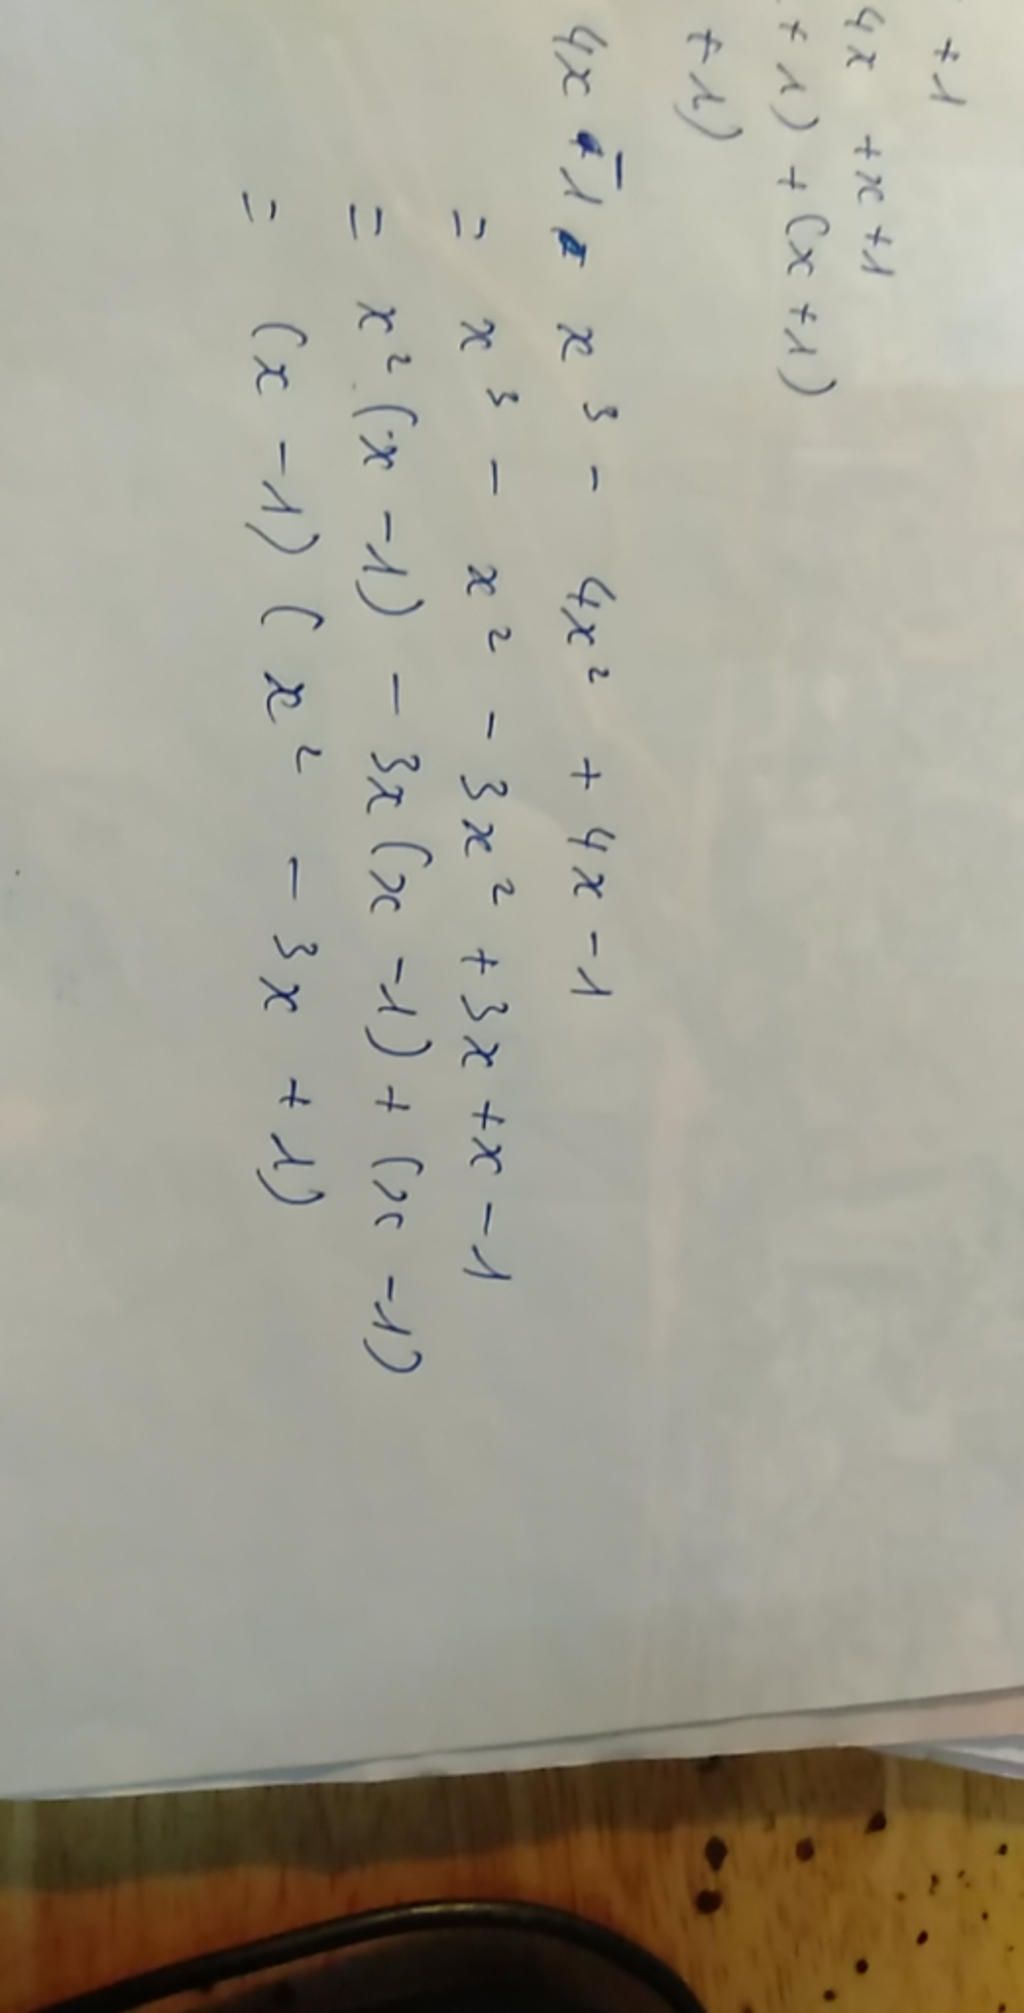 +1
4x +x+1
+1) + (x+1)
+1)
4x -1 x³ - 4x² + 4x -1
= x³ - x² - 3x² + 3x + x - 1
= x² (x -1) - 3x (x -1) + (x -1)
= (x -1) (x² - 3x + 1)